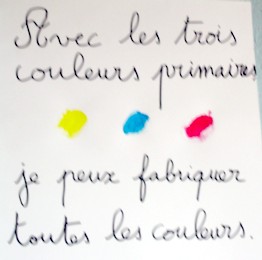 Avec les trois
couleurs primaires
je peux fabriquer
toutes les couleurs.